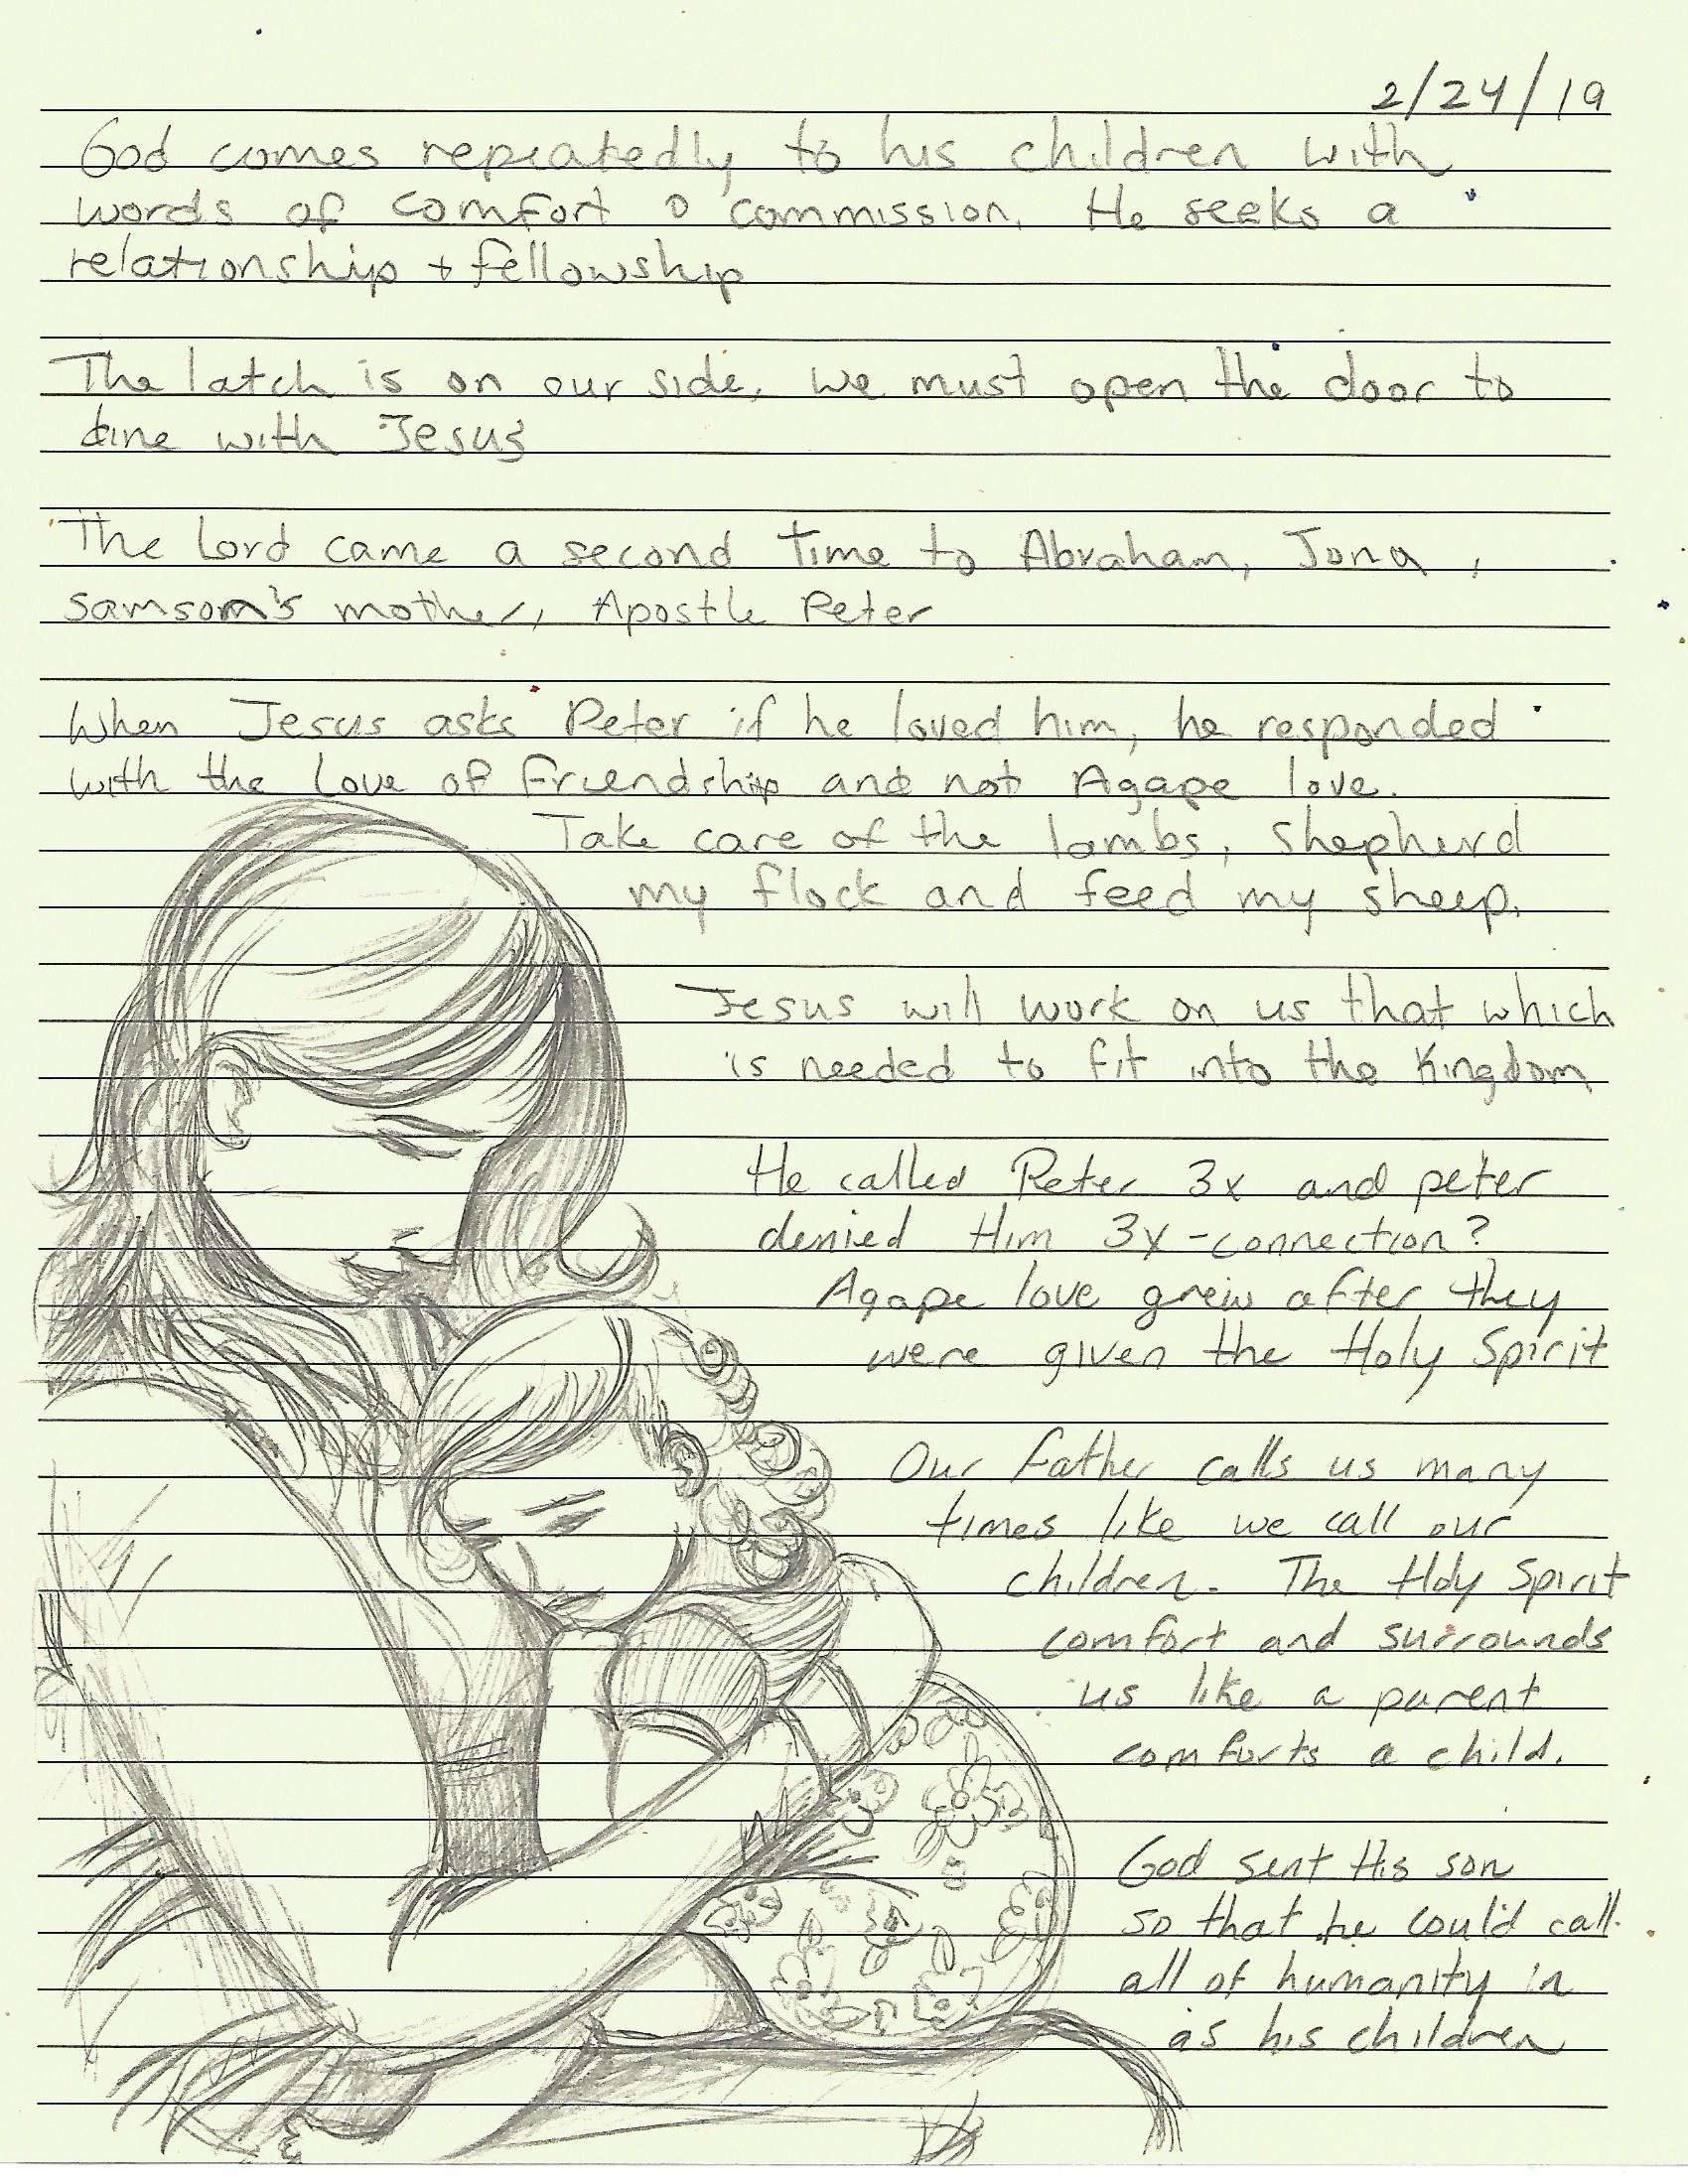 2/24/19
God comes repeatedly to his children with
words of comfort & commission. He seeks a
relationship + fellowship
The latch is on our side, we must open the door to
dine with Jesus
The Lord came a second time to Abraham, Jona,
Samsom's mother, Apostle Peter
When Jesus asks Peter if he loved him, he responded
with the Love of Friendship and not Agape love.
Take care of the lambs, Shepherd
my flock and feed my sheep.
Jesus will work on us that which
is needed to fit into the Kingdom
He called Peter 3x and peter
denied Him 3x - connection?
Agape love grew after they
were given the Holy Spirit
Our Father calls us many
times like we call our
children. The Holy Spirit
comfort and surrounds
us like a parent
comforts a child.
God sent His son
so that he could call
all of humanity in
as his children